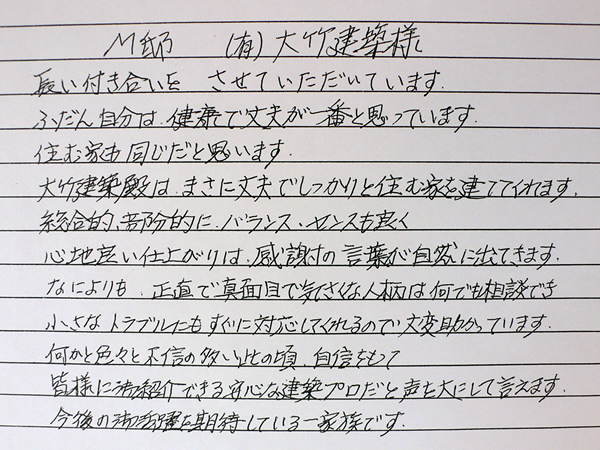 M邸 (有)大竹建築様
長い付き合いを させていただいています.
ふだん自分は、健康で丈夫が一番と思っています.
住む家も同じだと思います.
大竹建築殿は、まさに丈夫でしっかりと住む家を建ててくれます.
総合的、部分的に、バランス・センスも良く
心地良い仕上がりは、感謝の言葉が自然に出てきます.
なによりも、正直で真面目で気さくな人柄は何でも相談でき
小さなトラブルにもすぐに対応してくれるので大変助かっています.
何かと色々と不信の多い此の頃、自信をもって
皆様に御紹介できる安心な建築プロだと声を大にして言えます.
今後の御活躍を期待している一家族です.